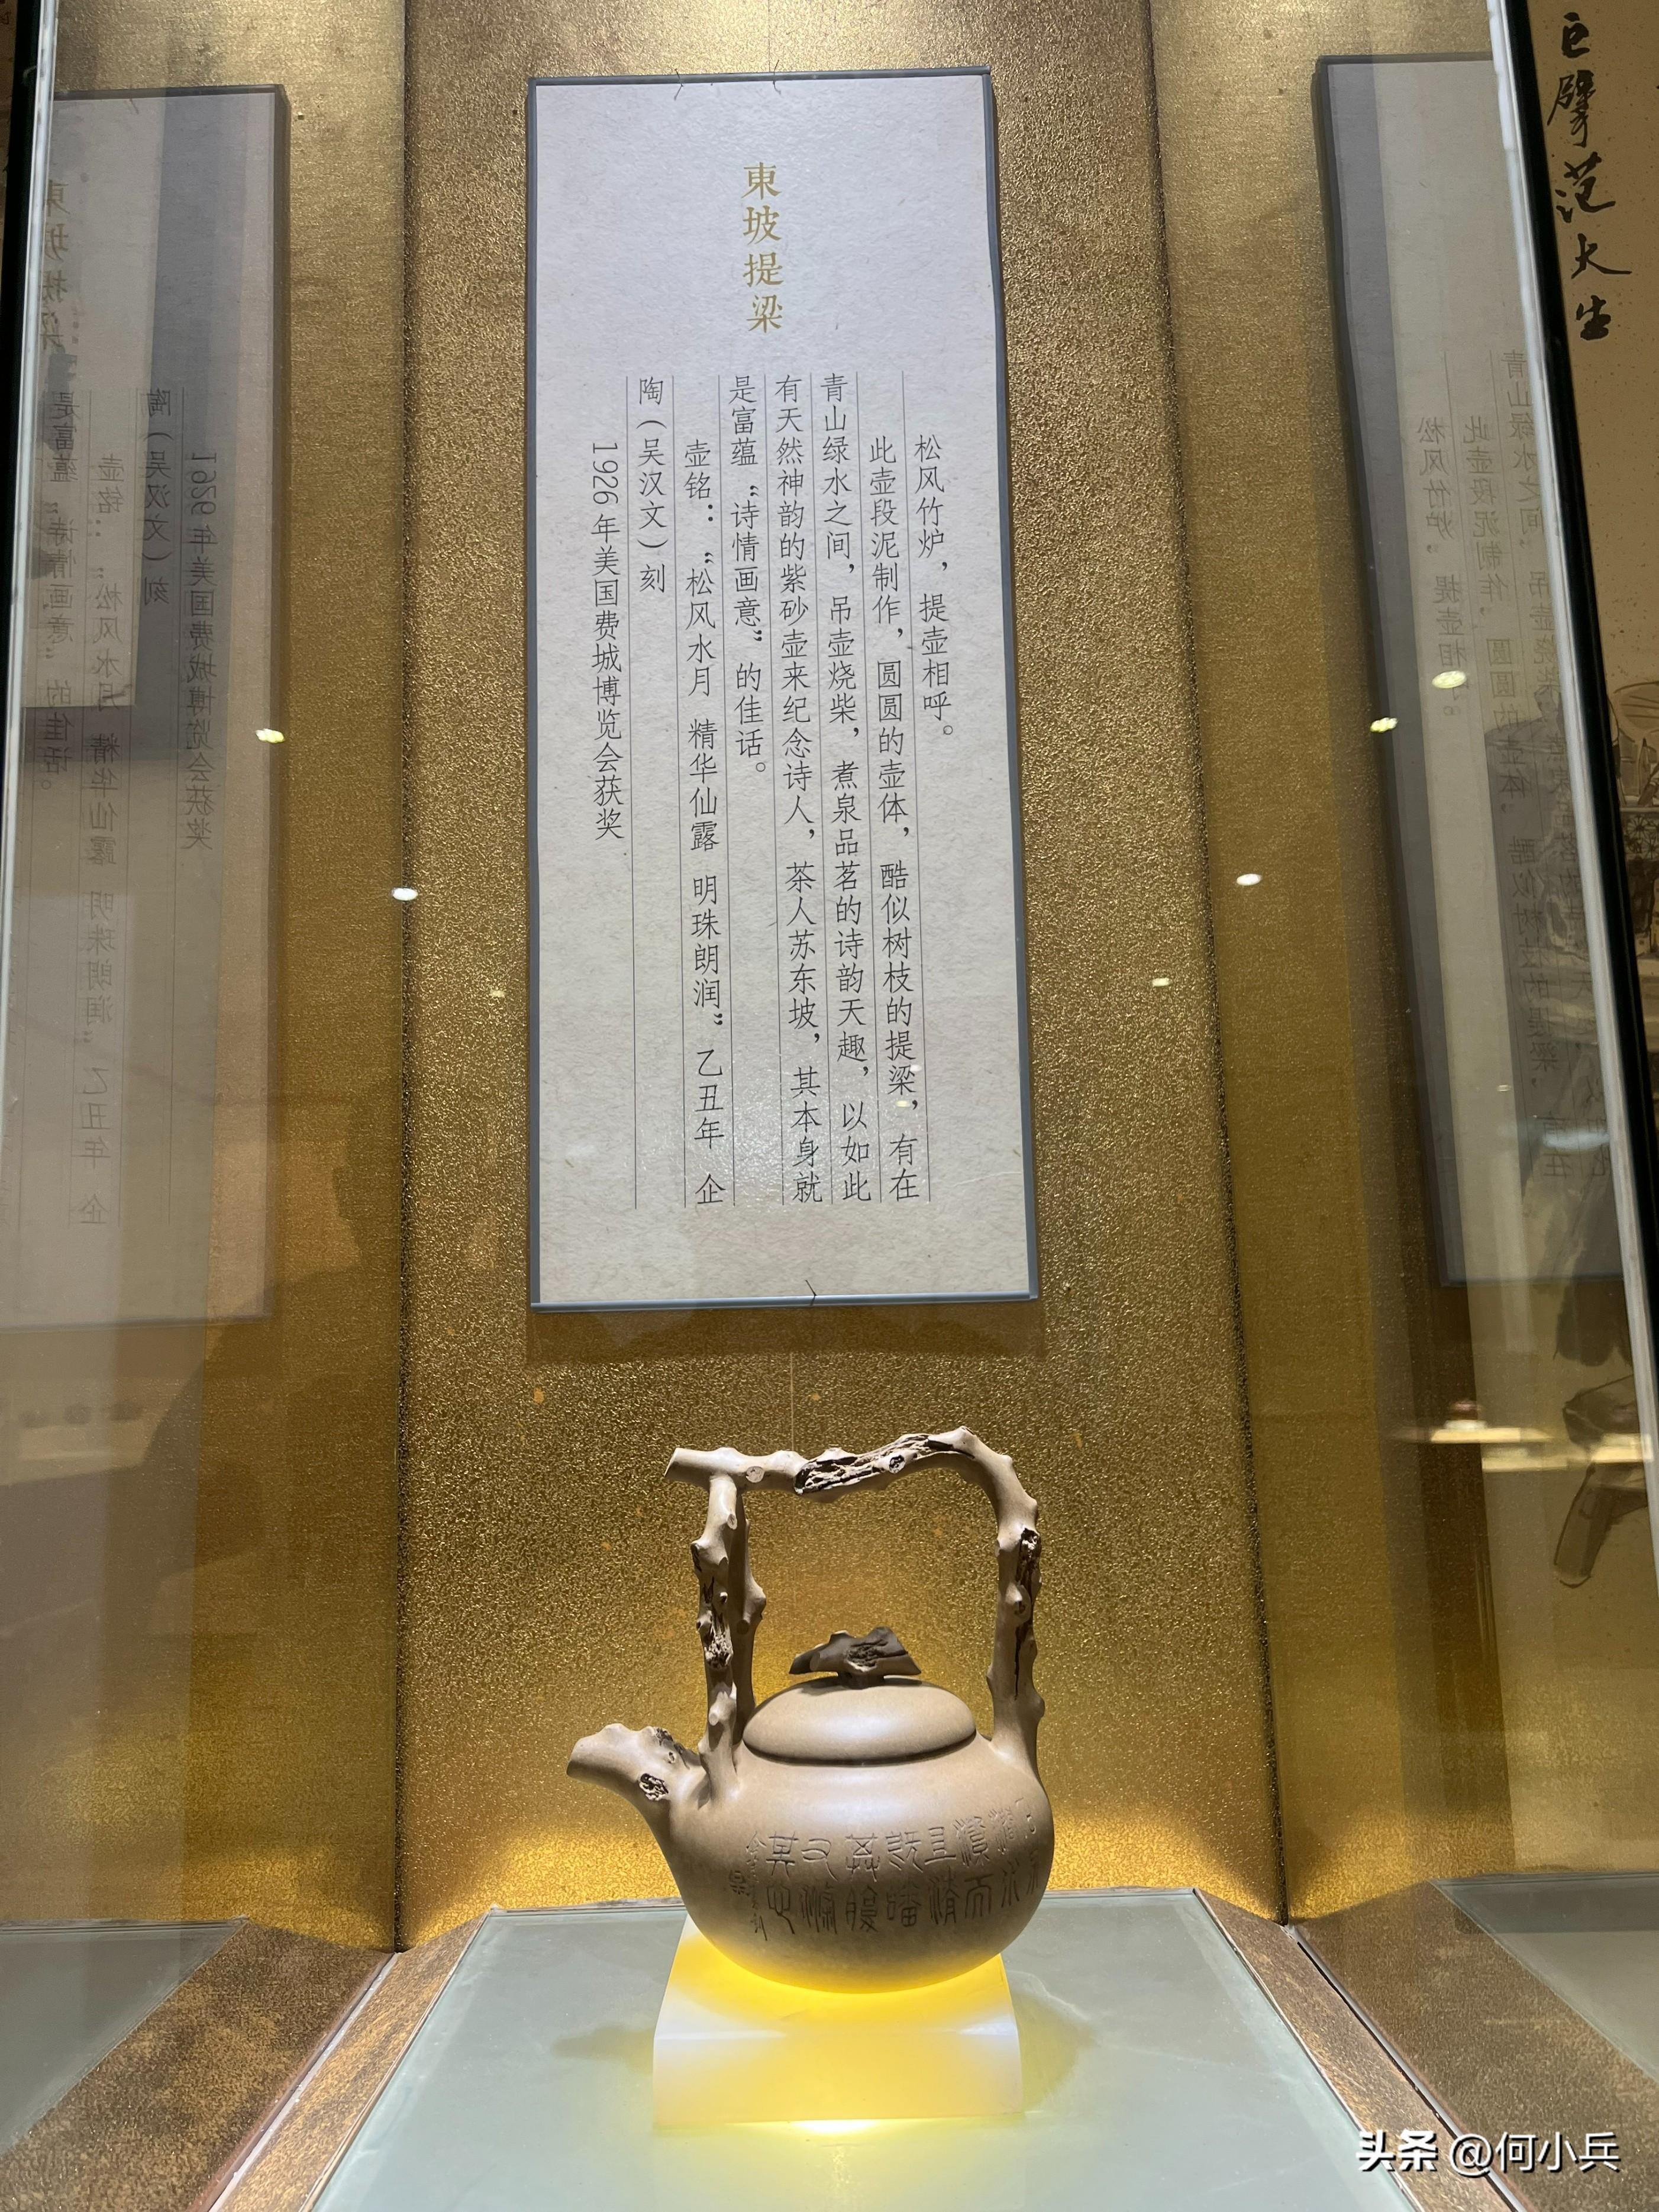 東坡提梁
松风竹炉，提壶相呼。
此壶段泥制作，圆圆的壶体，酷似树枝的提梁，有在
青山绿水之间，吊壶烧柴，煮泉品茗的诗韵天趣，以如此
有天然神韵的紫砂壶来纪念诗人，茶人苏东坡，其本身就
是富蕴“诗情画意”的佳话。
壶铭：“松风水月 精华仙露 明珠朗润”乙丑年 企
陶（吴汉文）刻
1926年美国费城博览会获奖
巨擘范大生
头条 @何小兵